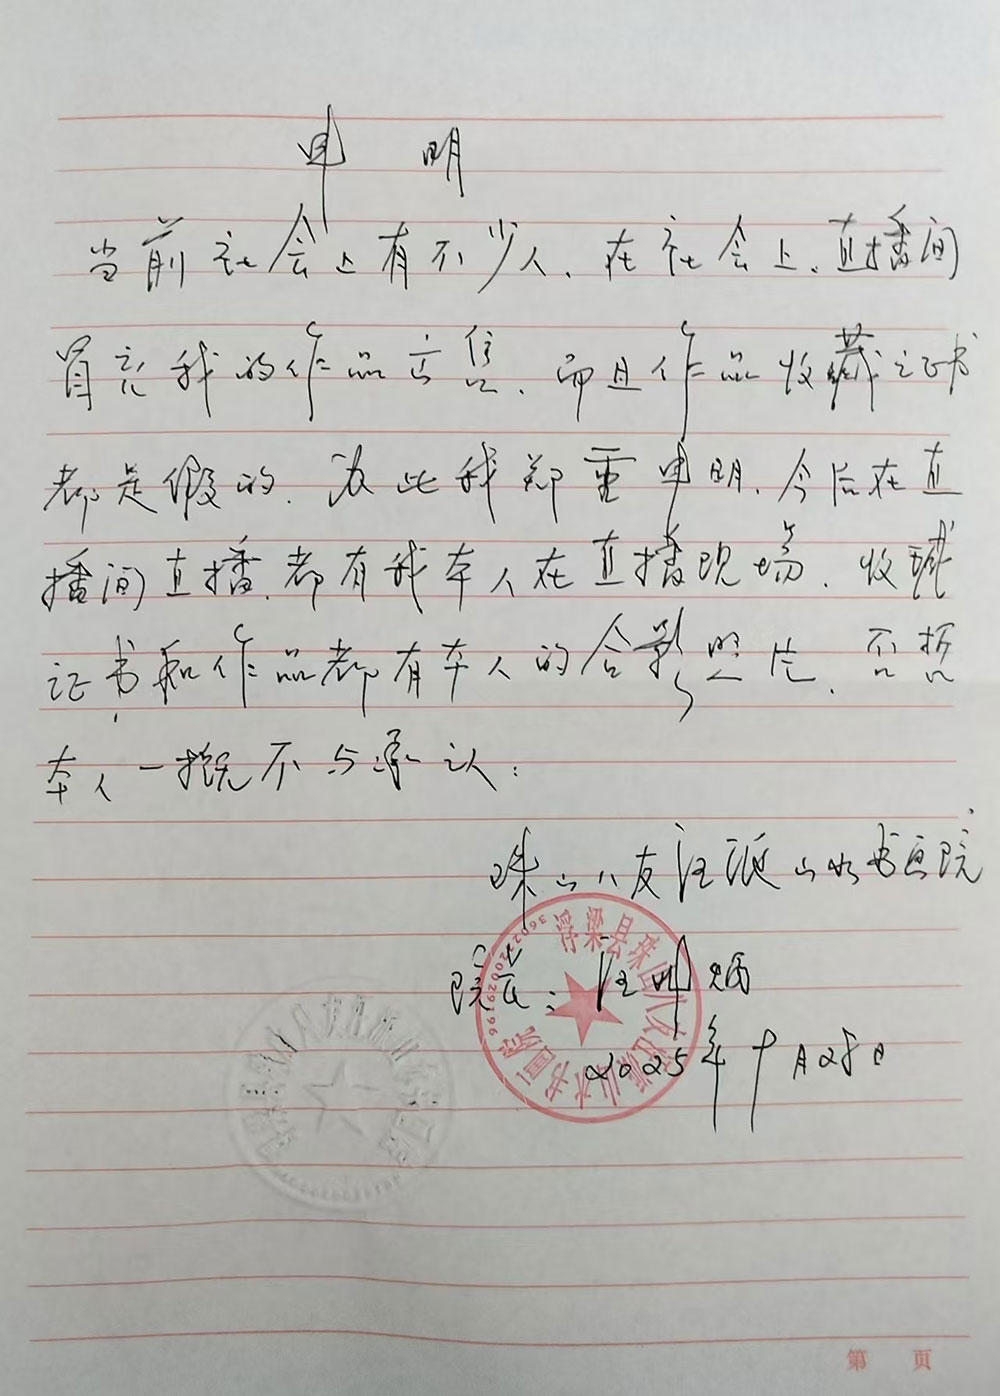 申明
当前社会上有不少人、在社会上、直播间
冒充我的作品出售、而且作品收藏证书
都是假的、为此我郑重申明、今后在直
播间直播、都有我本人在直播现场、收藏
证书和作品都有本人的合影照片、否则
本人一概不与承认：
珠山八友汪派山水书画院
院长：汪
2025年十月28日
浮梁县珠山八友汪派山水书画院
第 页